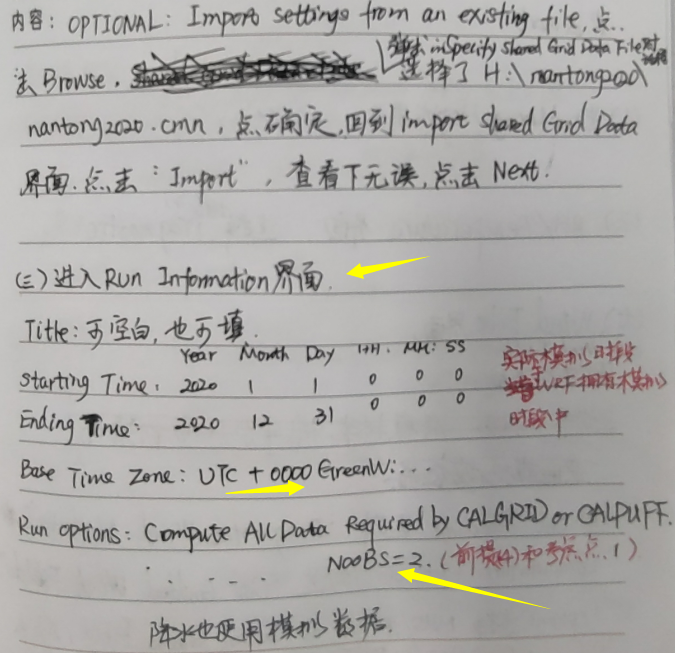 内容: OPTIONAL: Import settings from an existing file, 点
击 Browse, 弹出 in Specify Shared Grid Data File 对话框
选择了 H:\nantong2020\
nantong2020.cmn, 点确定, 回到 import shared Grid Data
界面. 点击 "Import", 查看下无误, 点击 Next.
(三) 进入 Run Information 界面.
Title: 可空白, 也可填.
Year Month Day HH: MM: SS
Starting Time: 2020 1 1 0 0 0
Ending Time: 2020 12 31 0 0 0
实际模拟时段
WRF拥有模拟
时段中
Base Time Zone: UTC + 0000 GreenWi...
Run options: Compute All Data Required by CALGRID or CALPUFF.
. . - - . NOOBS=2. (前提(4)和考虑点.1)
降水也使用模拟数据.